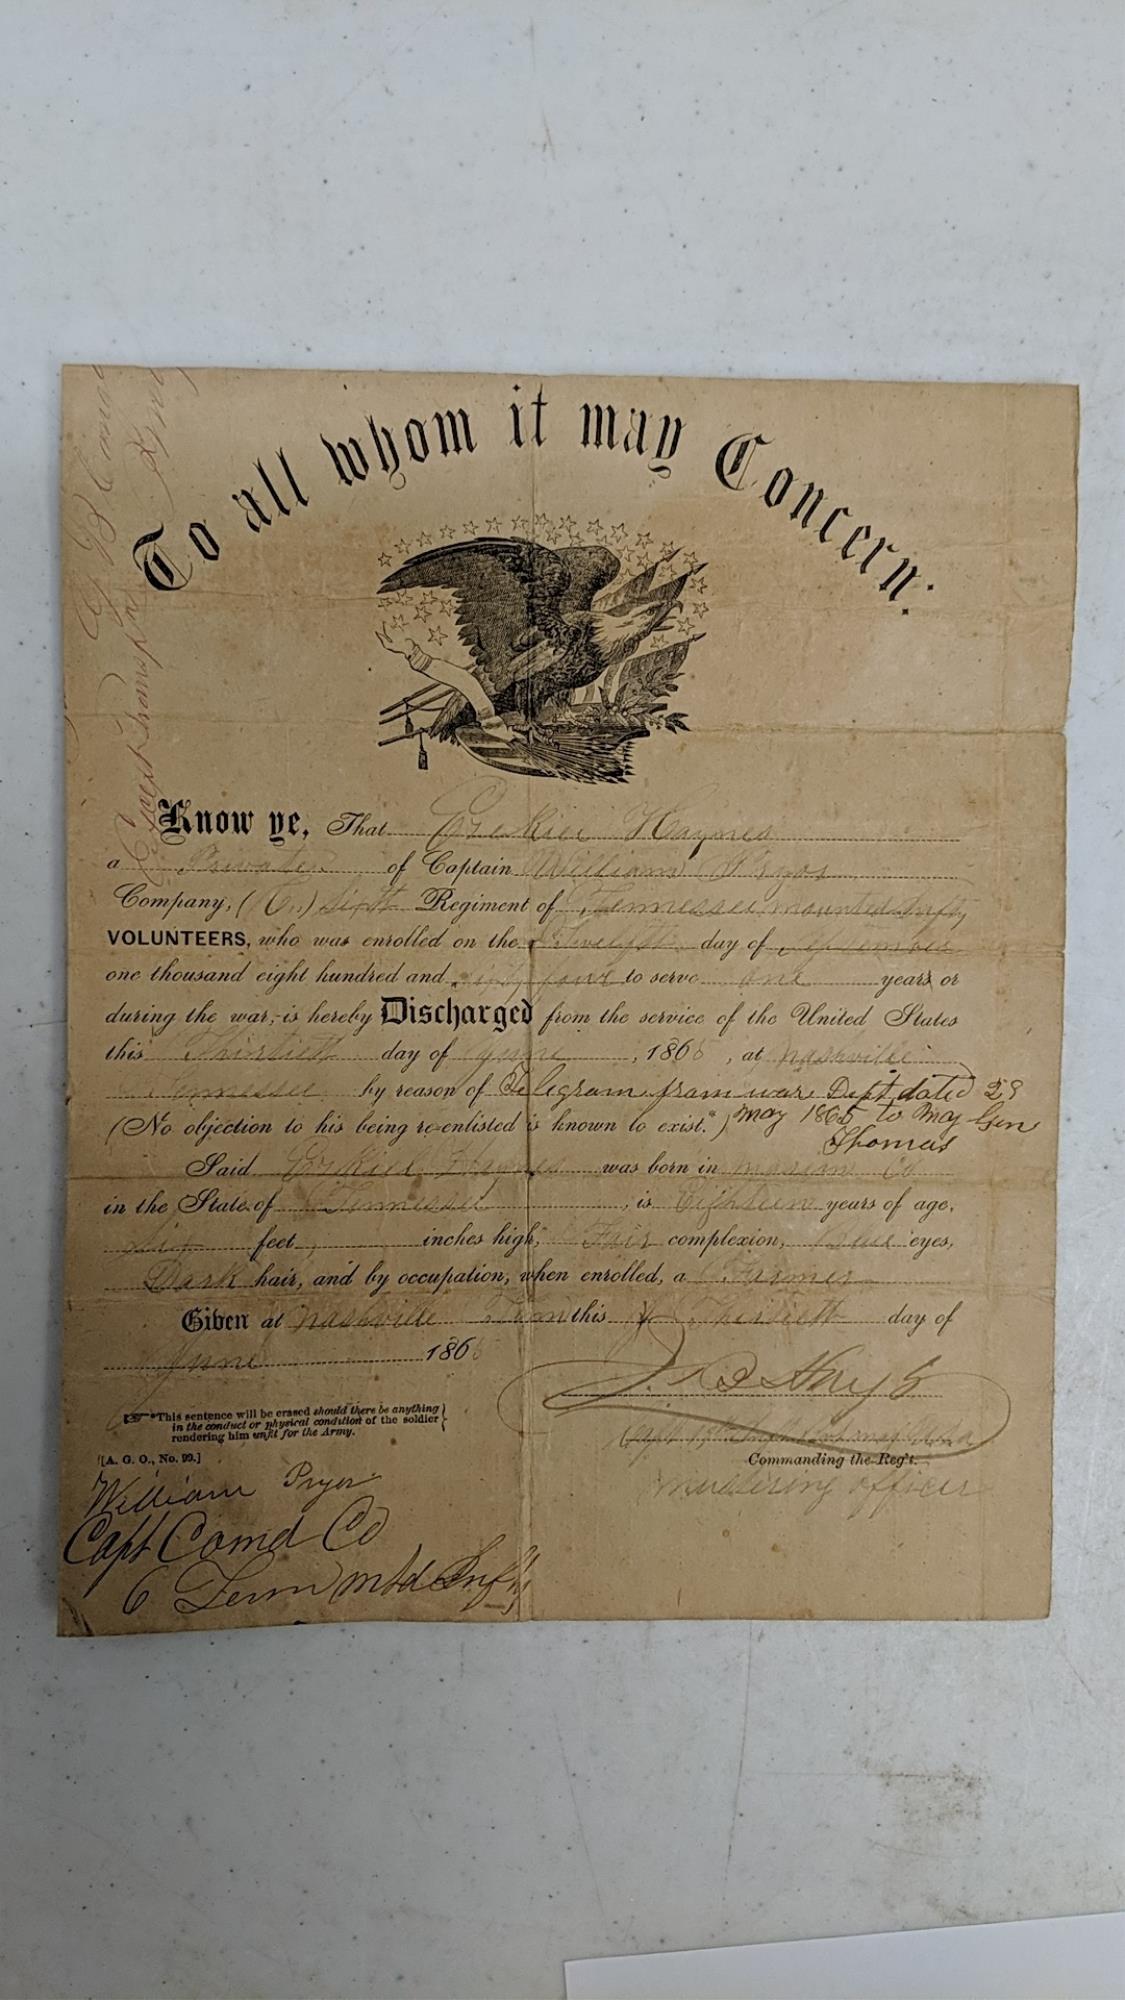 To all whom it may Concern:
Know ye, That Ezekiel Haynes
a Private of Captain William Pryor
Company, (C.) Sixth Regiment of Tennessee mounted Infty
VOLUNTEERS, who was enrolled on the Twelfth day of September
one thousand eight hundred and sixty four to serve one years or
during the war, is hereby Discharged from the service of the United States
this Thirtieth day of June, 1865, at Nashville
Tennessee by reason of Telegram from war Dept dated 29
(No objection to his being re-enlisted is known to exist.*) May 1865 to Maj Gen
Thomas
Said Ezekiel Haynes was born in Marion Co
in the State of Tennessee, is Eighteen years of age,
Six feet inches high, Fair complexion, Blue eyes,
Dark hair, and by occupation, when enrolled, a Farmer
Given at Nashville Tenn this Thirtieth day of
June 1865
☞*This sentence will be erased should there be anything
in the conduct or physical condition of the soldier
rendering him unfit for the Army.
[A. G. O., No. 99.]
Capt
Commanding the Reg't.
mustering officer
William Pryor
Capt Comd Co
6 Tenn Mtd Inf'ty